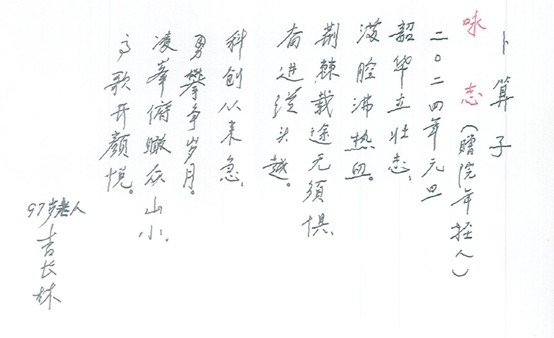 卜算子
咏志(赠院年轻人)
二〇二四年元旦
韶华立壮志,
满腔沸热血。
荆棘载途无须惧,
奋进从头越。
科创从来急,
勇攀争岁月。
凌峯俯瞰众山小,
高歌开颜悦。
97岁老人
吉长林